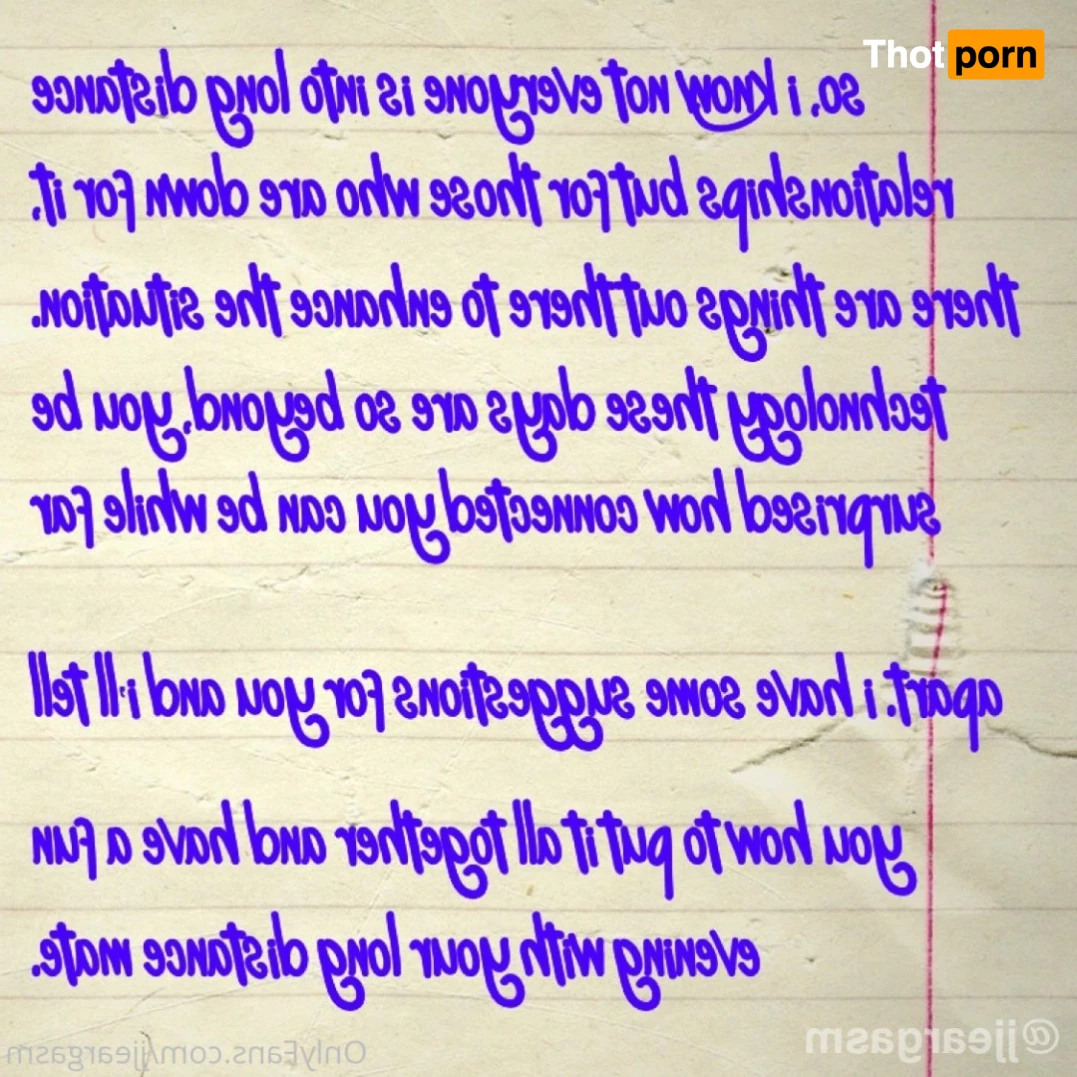 Thot porn
so, i know not everyone is into long distance
relationships but for those who are down for it,
there are things out there to enhance the situation.
technology these days are so beyond, you be
surprised how connected you can be while far
apart. i have some suggestions for you and i'll tell
you how to put it all together and have a fun
evening with your long distance mate.
@jjeargasm
OnlyFans.com/jjeargasm